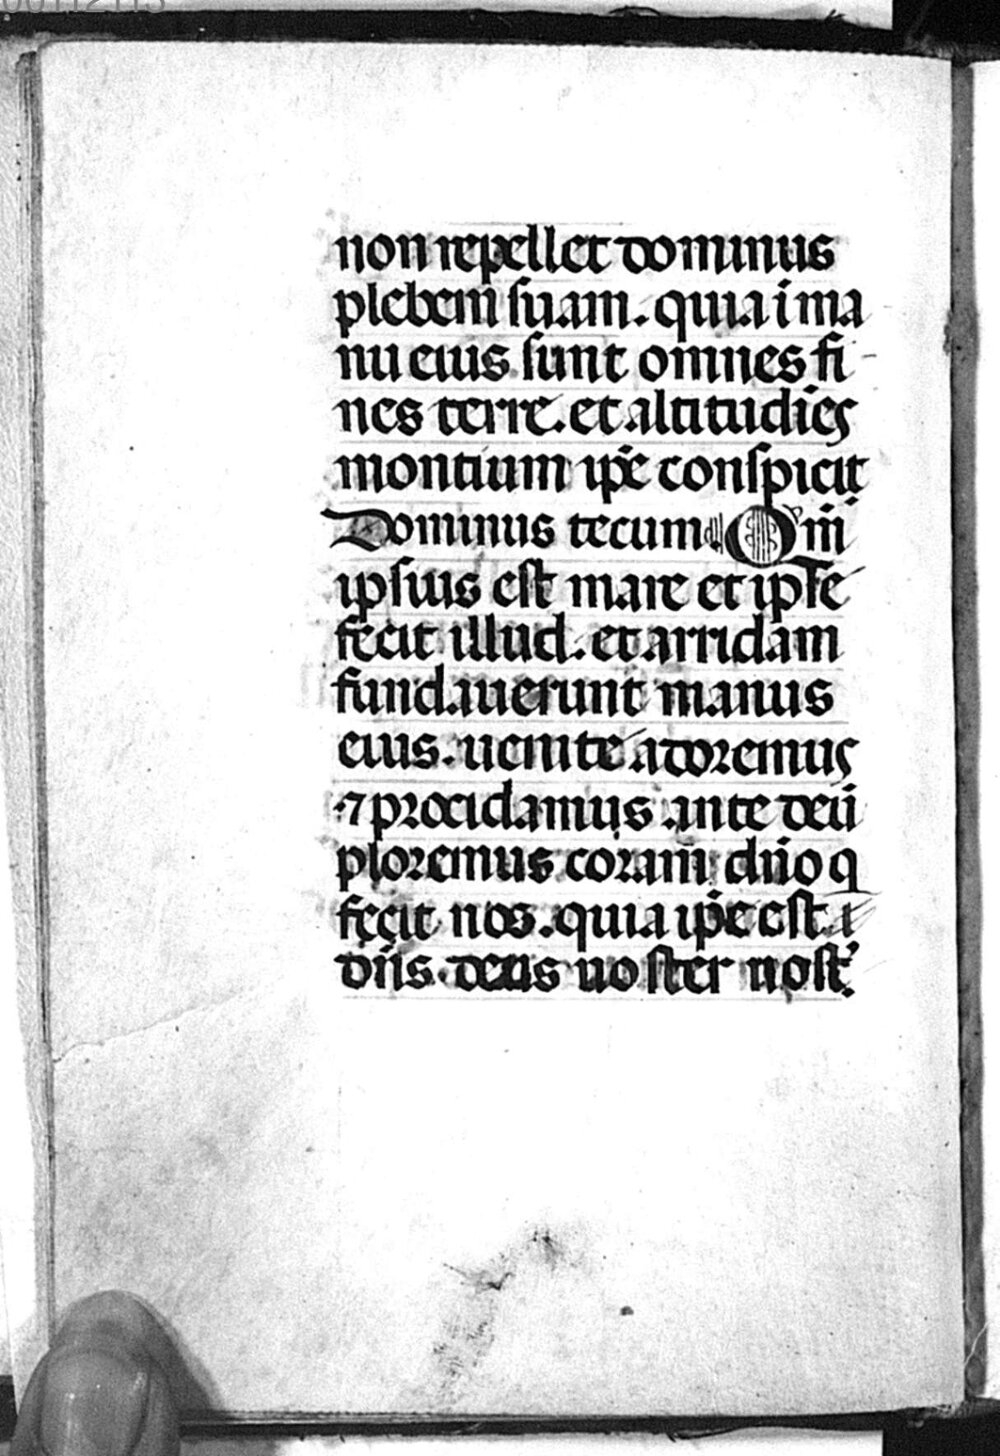 non repellet dominus
plebem suam. quia ī ma
nu eius sunt omnes fi-
nes terre. et altitudies
montium ip̄e conspicit
Dominus tecum Qm̄
ipsius est mare et ipse
fecit illud. et arridam
fundauerunt manus
eius. uenite adoremus
⁊ procidamus ante deū
ploremus coram dn̄o q
fecit nos. quia ip̄e est
dn̄s. deus noster nost̄.